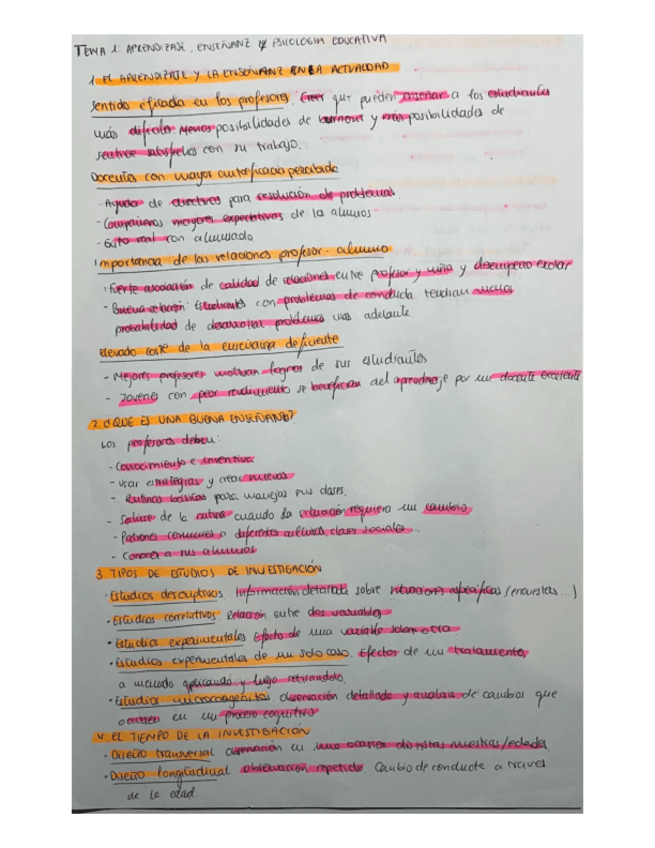 TEMA 1: APRENDIZAJE, ENSEÑANZ Y PSICOLOGIA EDUCATIVA
1. EL APRENDIZAJE Y LA ENSEÑANZ EN LA ACTUALIDAD
Sentido eficacia en los profesores. Creer que pueden enseñar a los estudiantes
más difíciles. Menos posibilidades de burnout y más posibilidades de
sentirse satisfechos con su trabajo.
Docentes con mayor autoeficacia percibida
- Ayuda de directivos para resolución de problemas
- Compañeros mayores expectativas de los alumnos
- Éxito real con alumnado
Importancia de las relaciones profesor-alumno
- Fuerte asociación de calidad de relaciones entre profesor y niño y desempeño escolar
- Buena relación: Estudiantes con problemas de conducta tendrían menos
probabilidad de desarrollar problemas más adelante
Elevado coste de la enseñanza deficiente
- Mejores profesores motivan logros de sus estudiantes
- Jovenes con peor rendimiento se benefician del aprendizaje por un docente excelente
2. ¿QUE ES UNA BUENA ENSEÑANZ?
Los profesores deben:
- Conocimiento e inventiva
- Usar estrategias y crear nuevas
- Rutinas básicas para manejar sus clases.
- Salirse de la rutina cuando la situación requiera un cambio
- Patrones comunes a diferentes culturas, clases sociales...
- Conocer a sus alumnos
3. TIPOS DE ESTUDIOS DE INVESTIGACIÓN
· Estudios descriptivos. Información detallada sobre situaciones específicas (encuestas...)
· Estudios correlativos Relación entre dos variables
· Estudios experimentales Efecto de una variable sobre otra.
· Estudios experimentales de un solo caso. Efectos de un tratamiento,
a menudo aplicando y luego retirandolo.
· Estudios microgenéticos. observación detallada y analisis de cambios que
ocurren en un proceso cognitivo
4. EL TIEMPO DE LA INVESTIGACIÓN
· Diseño transversal en una ocasión distintas muestras/edades
· Diseño longitudinal observación repetida. Cambio de conducta a traves
de la edad.